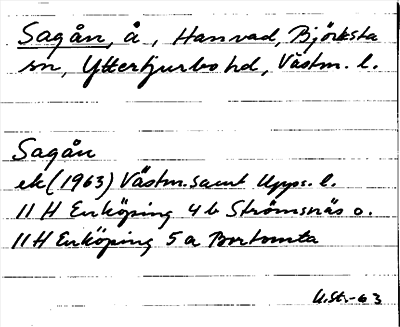 Sagån, å, Hassvad, Björksta
sn, Yttertjurbo hd, Västm. l.
Sagån
ek (1963) Västm. samt Upps. l.
11 H Enköping 4 b Strömsnäs o.
11 H Enköping 5 a Bortomta
U.St.-63